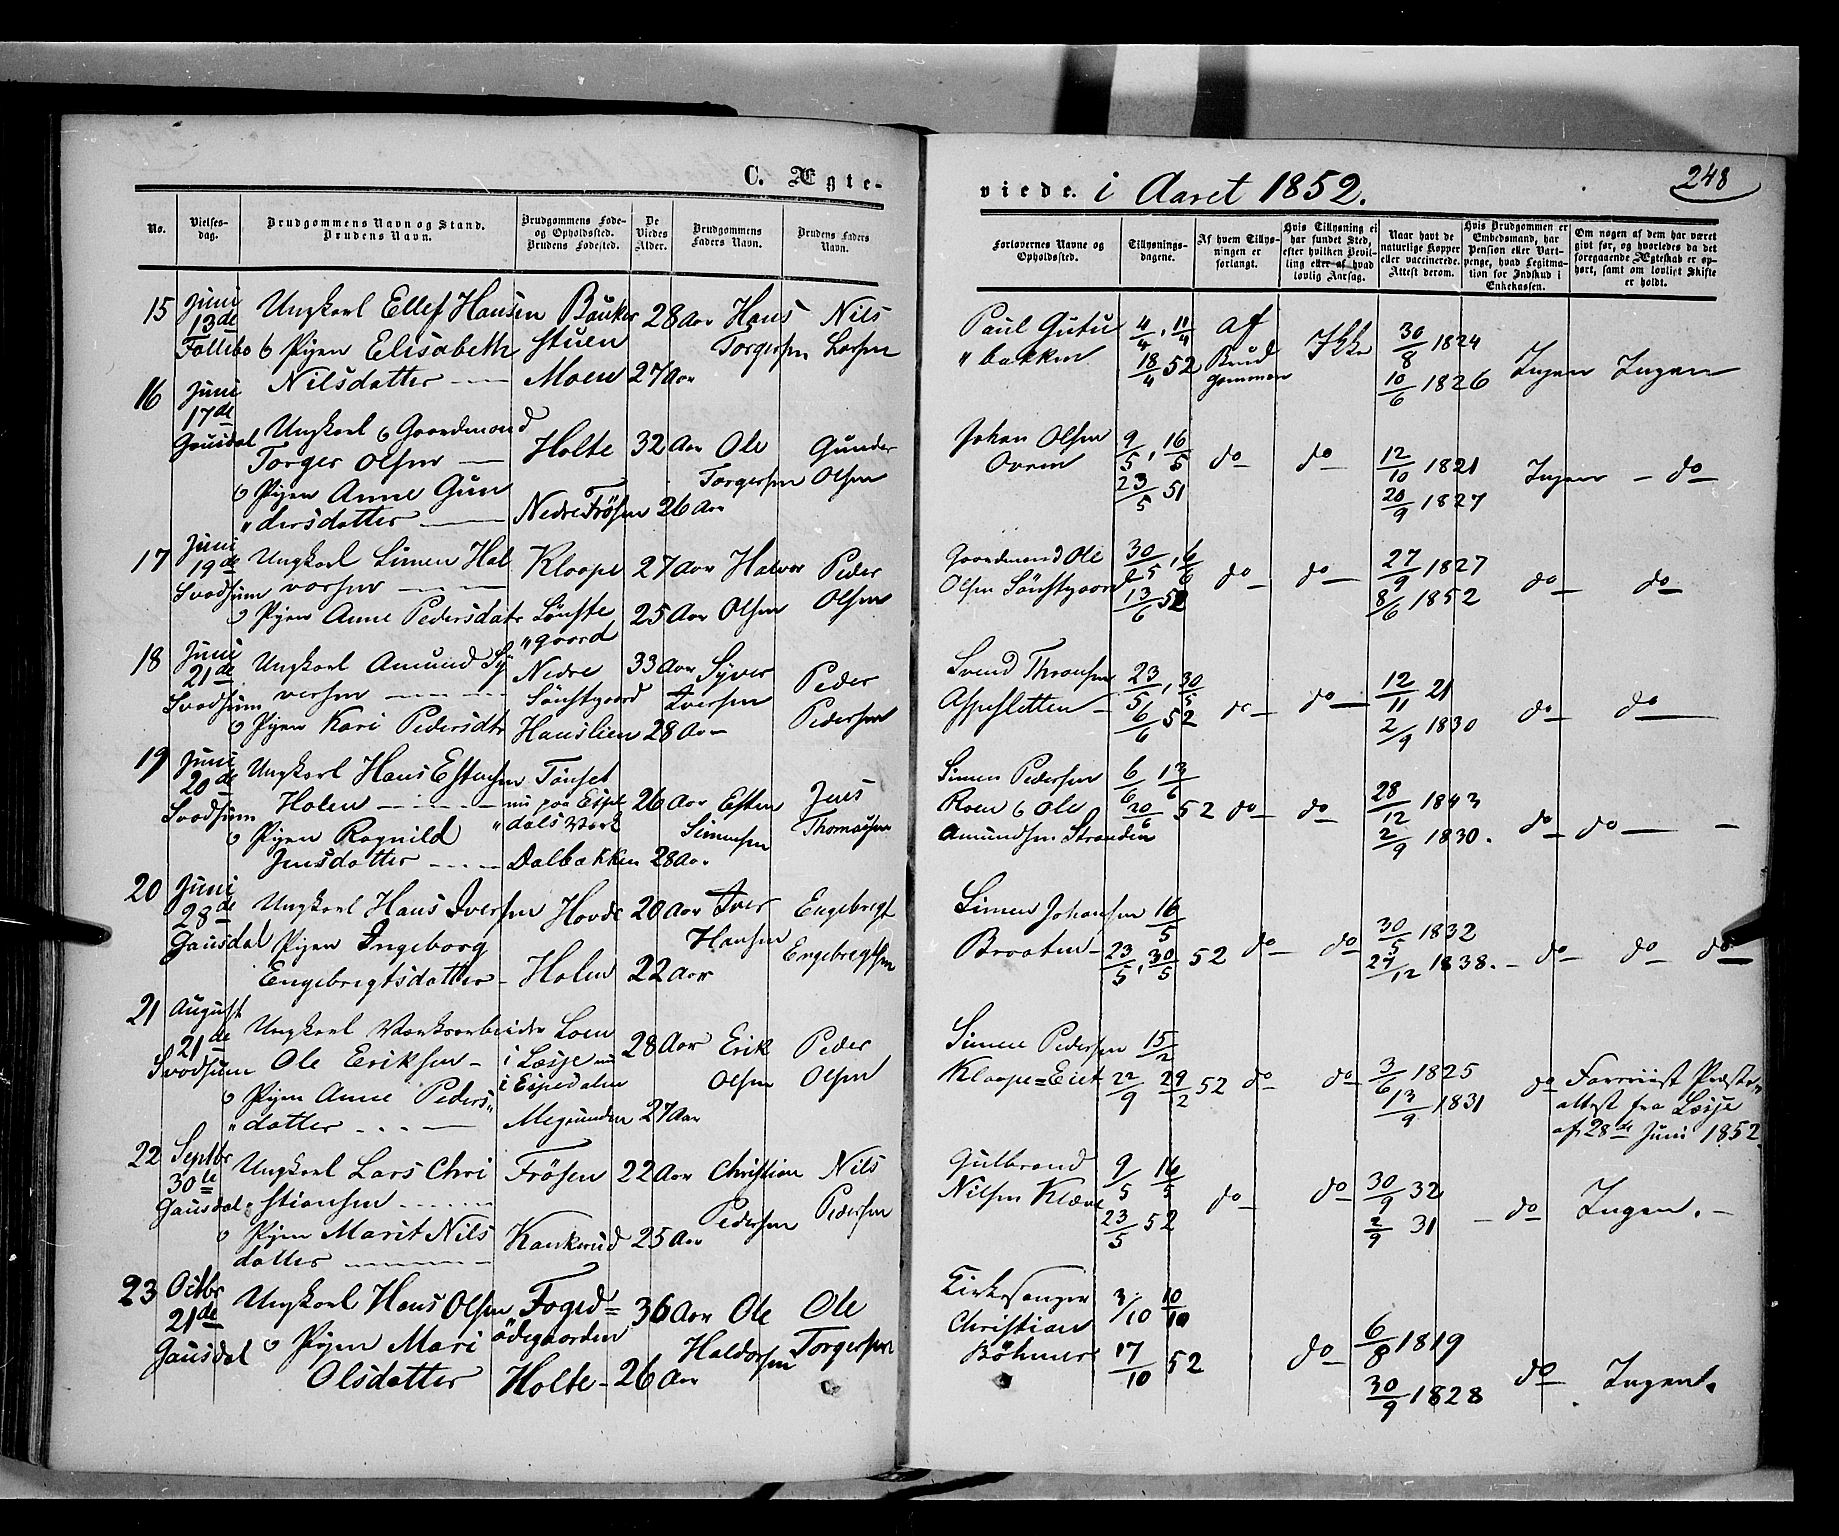 C. Ægte-
No.
Vielses-
dag.
Brudgommens Navn og Stand.
Brudens Navn.
Brudgommens Føde-
og Opholdssted.
Brudens Fødested.
De
Viedes
Alder.
Brudgommens
Faders Navn.
Brudens Faders
Navn.
15 Juni
13de
Follebo
Ungkarl Ellef Hansen
& Pigen Elisabeth
Nilsdatter
Bauker
stuen
Moen
28 Aar
27 Aar
Hans
Torgersen
Nils
Larsen
16 Juni
17de
Gausdal
Ungkarl & Gaardmand
Torger Olsen
& Pigen Anne Gun
"dersdatter
Holte
Nedre Frøsen
32 Aar
26 Aar
Ole
Torgersen
Gunder
Olsen
17 Juni
19de
Svadsum
Ungkarl Simen Hal
vorsen
& Pigen Anne Pedersdatr
Kloope
Sønste
"gaard
27 Aar
25 Aar
Halvor
Olsen
Peder
Olsen
18 Juni
21de
Svadsum
Ungkarl Amund Sy
versen
& Pigen Kari Pedersdtr
Nedre
Sønstgaard
Hauslien
33 Aar
28 Aar
Syver
Iversen
Peder
Pedersen
19 Juni
20de
Svadsum
Ungkarl Hans Estensen
Holen
& Pigen Ragnild
Jensdatter
Tønset
nu paa Espe
"dals Værk
Dalbakken
26 Aar
28 Aar
Esten
Simensen
Jens
Thomassen
20 Juni
28de
Gausdal
Ungkarl Hans Iversen
Pigen Ingeborg
Engebregtsdatter
Hovde
Holen
20 Aar
22 Aar
Iver
Hansen
Engebregt
Engebregtsen
21 August
21de
Svadsum
Ungkarl Værksarbeider
Ole Eriksen
& Pigen Anne Peders"
"datter
Loen
i Læsje nu
i Espedalen
Megrunden
28 Aar
27 Aar
Erik
Olsen
Peder
Olsen
22 Septbr
30te
Gausdal
Ungkarl Lars Chri
stiansen
& Pigen Marit Nils
datter
Frøsen
Kankerud
22 Aar
25 Aar
Christian
Pedersen
Nils
Pedersen
23 Octbr
21de
Gausdal
Ungkarl Hans Olsen
& Pigen Mari
Olsdatter
Foged=
ødegaarden
Holte
36 Aar
26 Aar
Ole
Haldorsen
Ole
Torgersen
viede. i Aaret 1852.
248
Forlovernes Navne og
Opholdssted.
Tillysnings-
dagene.
Af hvem Tillys-
ningen er
forlangt.
Hvis Tillysning ei
har fundet Sted,
efter hvilken Bevil-
ling eller af hvad
lovlig Aarsag.
Naar havt de
naturlige Kopper
eller vaccinerede.
Attest derom.
Hvis Brudgommen er
Embedsmand, har
Pension eller Vart-
penge, hvad Legitima-
tion for Indskud i
Enkekassen.
Om nogen af dem har været
givt før, og hvorledes da det
foregaaende Ægteskab er op-
hørt, samt om lovligt Skifte
er holdt.
Paul Gutu
"bakken
4/4, 11/4
18/4 52
af
Brud
gommen
Ikke
30/8 1824
10/6 1826
Ingen
Ingen
Johan Olsen
Ovren
9/5, 16/5
23/5 51
do
do
12/10 1821
20/9 1827
Ingen
do
Gaardmand Ole
Olsen Sønstgaard
30/5, 6/6
13/6 52
do
do
27/9 1827
8/6 1852
do
do
Svend Thronsen
Aspesletten
23/5, 30/5
6/6 52
do
do
12/11 21
2/9 1830
do
do
Simen Pedersen
Roen & Ole
Amundsen Stranden
6/6 13/6
20/6 52
do
do
28/12 1843
2/9 1830.
do
do
Simen Johansen
Braaten
16/5
23/5, 30/5 52
do
do
30/5 1832
27/12 1838.
do
do
do
Simen Pedersen
Kloope=Eiet
15/2
22/9 29/2 52
do
do
3/6 1825
13/9 1831
do
Foreviist Præste"
attest fra Læsje
af 28de Juni 1852.
Gulbrand
Nilsen Klæve
9/5 16/5
23/5 52
do
do
30/9 32
2/9 31
do
Ingen.
Kirkesanger
Christian
Bøhmer
3/10 10/10
17/10 52
do
6/8 1819
30/9 1828
do
Ingen.